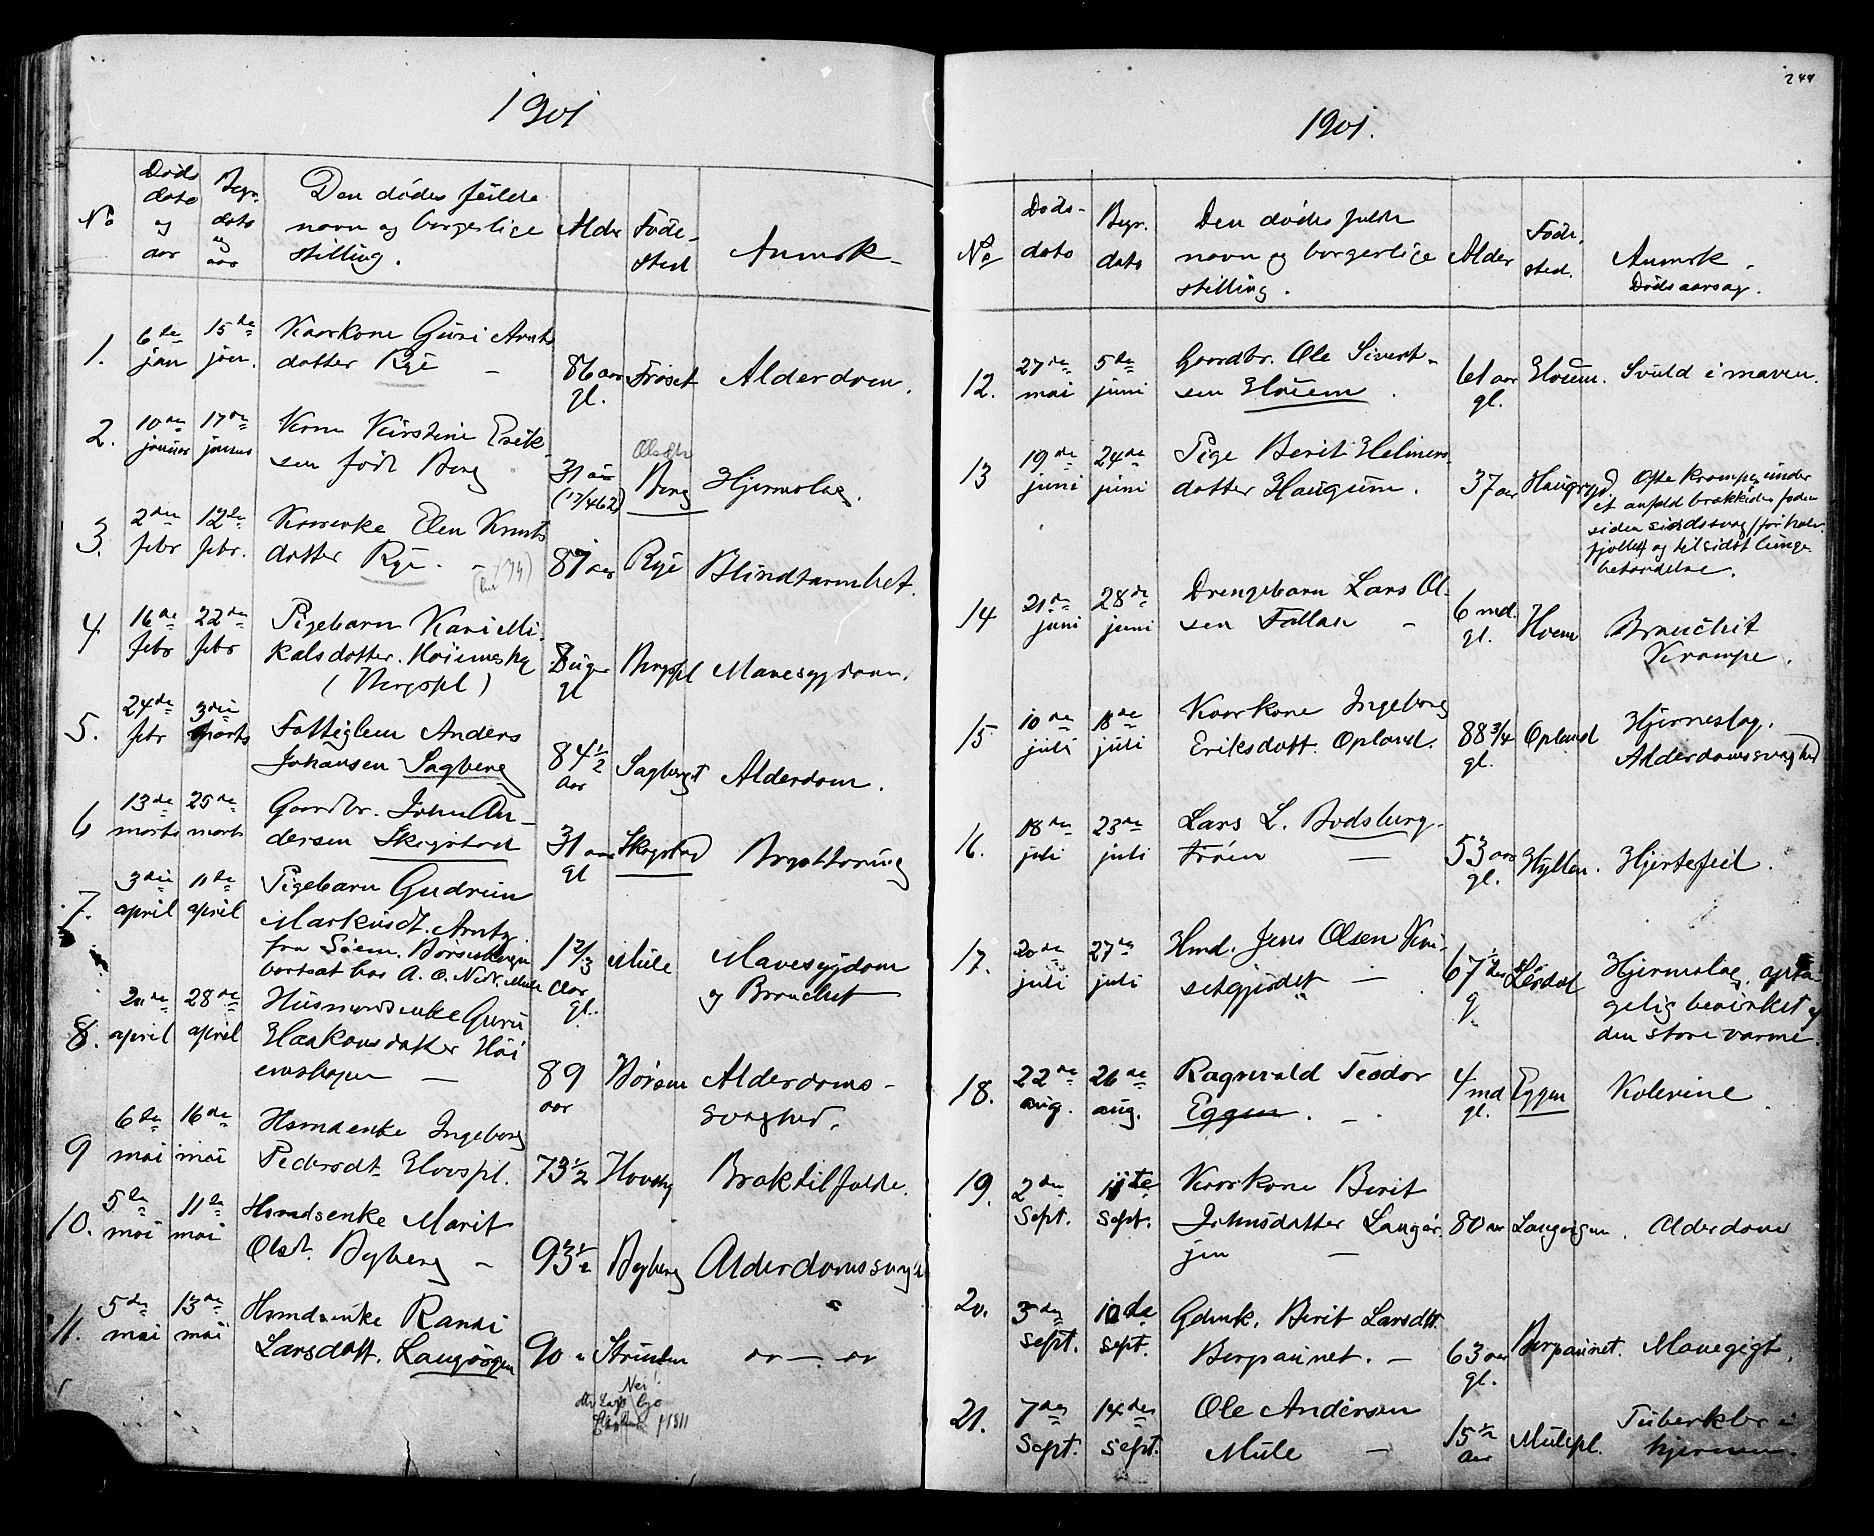 1901
No
Døds
dato
og
aar
Begr.
dato
og
aar
Den dødes fulde
navn og borgerlige
stilling.
Alder
Føde-
sted
Anmerk-
1.
6te
jan
15de
jan.
Kaarkone Guri Arnts
datter Rye –
86 aar
gl.
Frøset
Alderdom.
2.
10de
januar
17de
januar
Kone Kirstine Erik
sen født Berg
31 aar
(17/4 62)
Berg
Hjerneslag.
3.
2den
febr
12te
febr.
Elen Knuts
datter Rye. –
87 aar
Rye
Blindtarmbet.
4
16de
febr
22de
febr
Pigebarn Kari Mi
kalsdatter.
8 uger
gl
Bergspl
Mavesygdom.
5.
24de
febr
3die
marts
Fattiglem Anders
Johansen Sagberg
84 ½
aar
Alderdom.
6
13de
marts
25de
marts
Gaardbr. John An-
dersen Skogstad
31 aar
gl
Skogstad
Brysttæring
7.
3die
april
11te
april
Pigebarn Gudrun
Markusdt.
fra
bortsat hos A. O. Nedr. Mule
1 2/3
aar
gl.
Mule
Mavesygdom
og Bronchit
8.
april
28de
april
Husmandsenke Guru
Haakonsdatter Høi
emshagen –
89
aar
Børsen
Alderdoms-
svaghed.
9
6te
mai
16de
mai
Hsmdenke Ingeborg
Pedersdt. Hovspl.
73 ½
Braktilfælde.
10.
5te
mai
11te
mai
Hsmdsenke Marit
Olsdt. Byberg –
93 ½
Byberg
Alderdomssvagh
11.
5de
mai
13de
mai
Hsmdsenke Randi
Larsdatt. Langørgen
90
Strinden
Nei!
1811
244
1901.
No
Døds-
dato
Begr.
dato
Den dødes fulde
navn og borgerlige
stilling.
Alder
Føde,
sted.
Anmerk –
Dødsaarsag.
12.
27de
mai
5te
juni
Gaardbr. Ole Sivert-
sen Hoem.
61 aar
gl.
Hoem.
Svuld i maven.
13
19de
juni
24de
juni
Pige Berit Helmers
datter Haugum.
37 aar
Ofte krampe, under
et anfald brækkiden foden
siden sindssvag (før halv
fjollet) og tilsidst lunge
betændelse.
14
21de
juni
28de
juni
Drengebarn Lars Ol-
sen Follan –
6 md.
gl.
Hoem
Bronchit
Krampe.
15
10de
juli
18de
juli
Kaarkone Ingeborg
Eriksdatt. Opland.
88 3/4
gl.
Opland
Hjerneslag.
Alderdomssvaghed
16.
18de
juli
23de
juli
Lars L. Bodsberg-
trøen –
53 aar
gl.
Hyllen.
Hjertefeil.
17.
20de
juli
27de
juli
Hmd. Jens Olsen
67 ½
gl.
Hjerneslag,
gelig bevirket af
den store varme.
18.
22de
aug.
26de
aug.
Ragnvald Teodor
Eggen. –
4 md
gl.
Eggen
Kolerine.
19.
2den
Sept.
11te
Sept.
Kaarkone Berit
Johnsdatter Langør
jen –
80 aar
Langørgen.
Alderdom
20.
3die
sept.
10de
sept.
Gdenk. Berit Larsdtt.
Berpaunet. –
63 aar
gl.
Berpaunet.
Mavegigt.
21.
7de
Sept.
14de
sept.
Ole Andersen
Mule –
15 ½
aar
Mulepl.
Tuberkler i
hjernen.